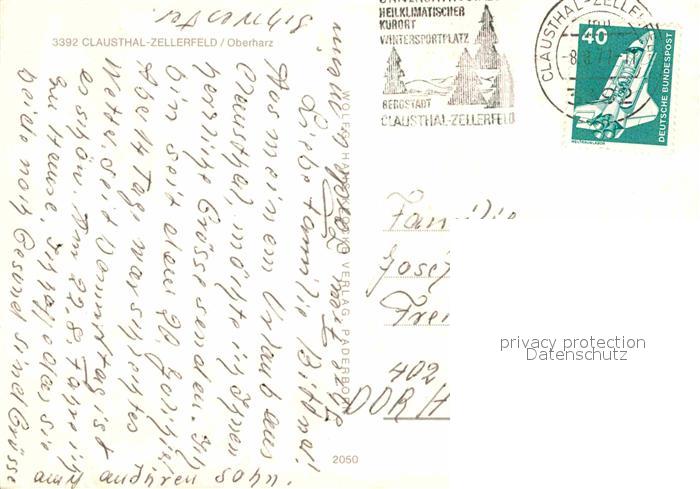 3392 CLAUSTHAL-ZELLERFELD / Oberharz
HEILKLIMATISCHER
KURORT
WINTERSPORTPLATZ
BERGSTADT
CLAUSTHAL-ZELLERFELD
CLAUSTHAL-ZELLERF
40
DEUTSCHE BUNDESPOST
WELTRAUMLABOR
Liebe Familie
Aus meinem Urlaub aus
Clausthal, möchte ich Ihnen
herzliche Grüsse senden. Ich
bin seit dem 20. Juli hier
Die 14 Tage war schlechtes
Wetter. Seit Donnerstag ist
es schön. Am 22.8. fahre ich
zu Hause. Ich hoffe das sie
beide noch Gesund sind. Grüsse
auch an ihren Sohn.
Schwester
WOLFGANG VERLAG, PADERBORN
Familie
Josef
402
2050
privacy protection
Datenschutz